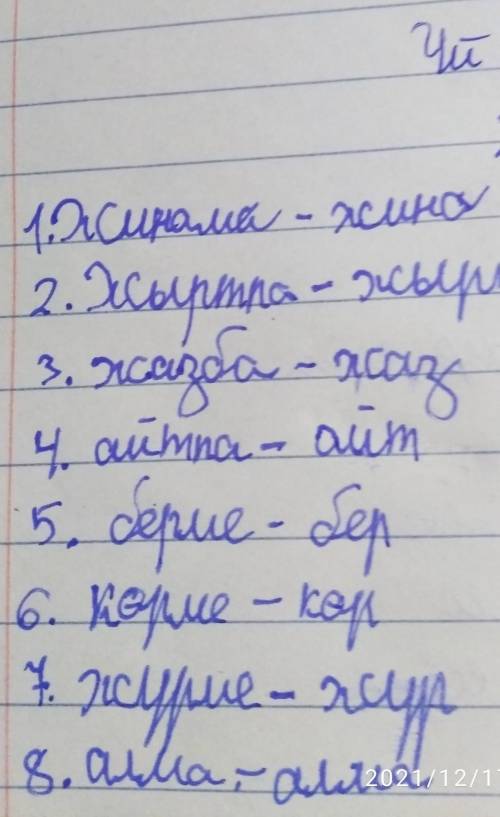 Үй
1. Жинама - жина
2. Жыртпа - жырт
3. жазба - жаз
4. айтпа - айт
5. берме - бер
6. көрме - көр
7. жүрме - жүр
8. алма. -
2021/12/17